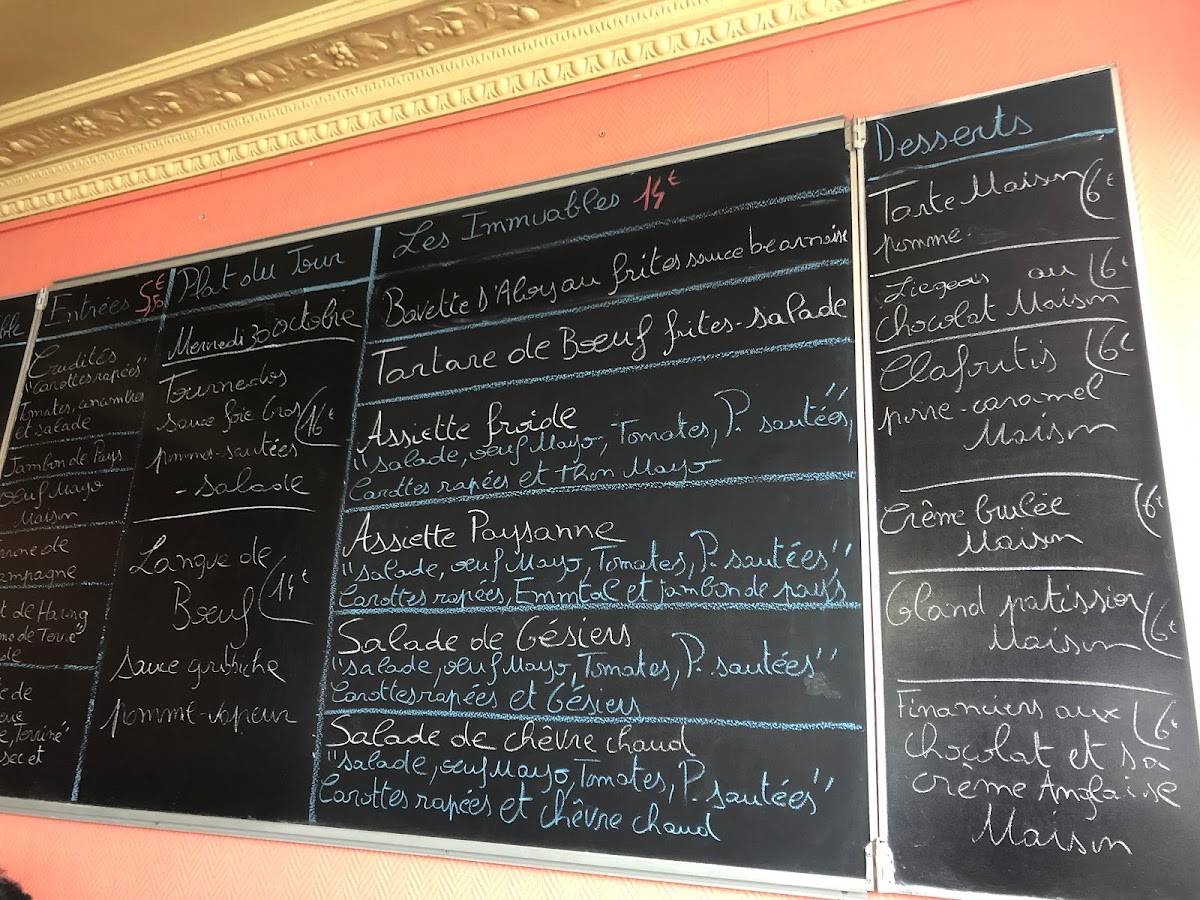 Entrées 5,50€
Crudités
"Carottes rapées"
Tomates, concombre
et salade
Jambon de Pays
Oeuf Mayo
Maison
de
ampagne
de Hareng
de Terre"
de
de
sec et
Plat du Jour
Mercredi 30 octobre
Tournedos
sauce foie Gras
16€
pommes-sautées
- salade
Langue de
Boeuf
14€
sauce gribiche
pomme-vapeur
Les Immuables 14€
Bavette d'Aloyau frites sauce bearnaise
Tartare de Bœuf frites-salade
Assiette froide
"salade, œuf Mayo, Tomates, P. sautées",
Carottes rapées et thon Mayo
Assiette Paysanne
"salade, œuf Mayo, Tomates, P. sautées"
Carottes rapées, Emmtal et jambon de pays
Salade de Gésiers
"salade, œuf Mayo, Tomates, P. sautées"
Carottes rapées et Gésiers
Salade de chèvre chaud
"salade, œuf Mayo, Tomates, P. sautées"
Carottes rapées et Chèvre chaud
Desserts
Tarte Maison 6€
pomme
Liegeois au 6€
Chocolat Maison
Clafoutis 6€
poire-caramel
Maison
Crème brulée 6€
Maison
Gland patissier
Maison 6€
Financiers aux 6€
chocolat et sa
crème Anglaise
Maison